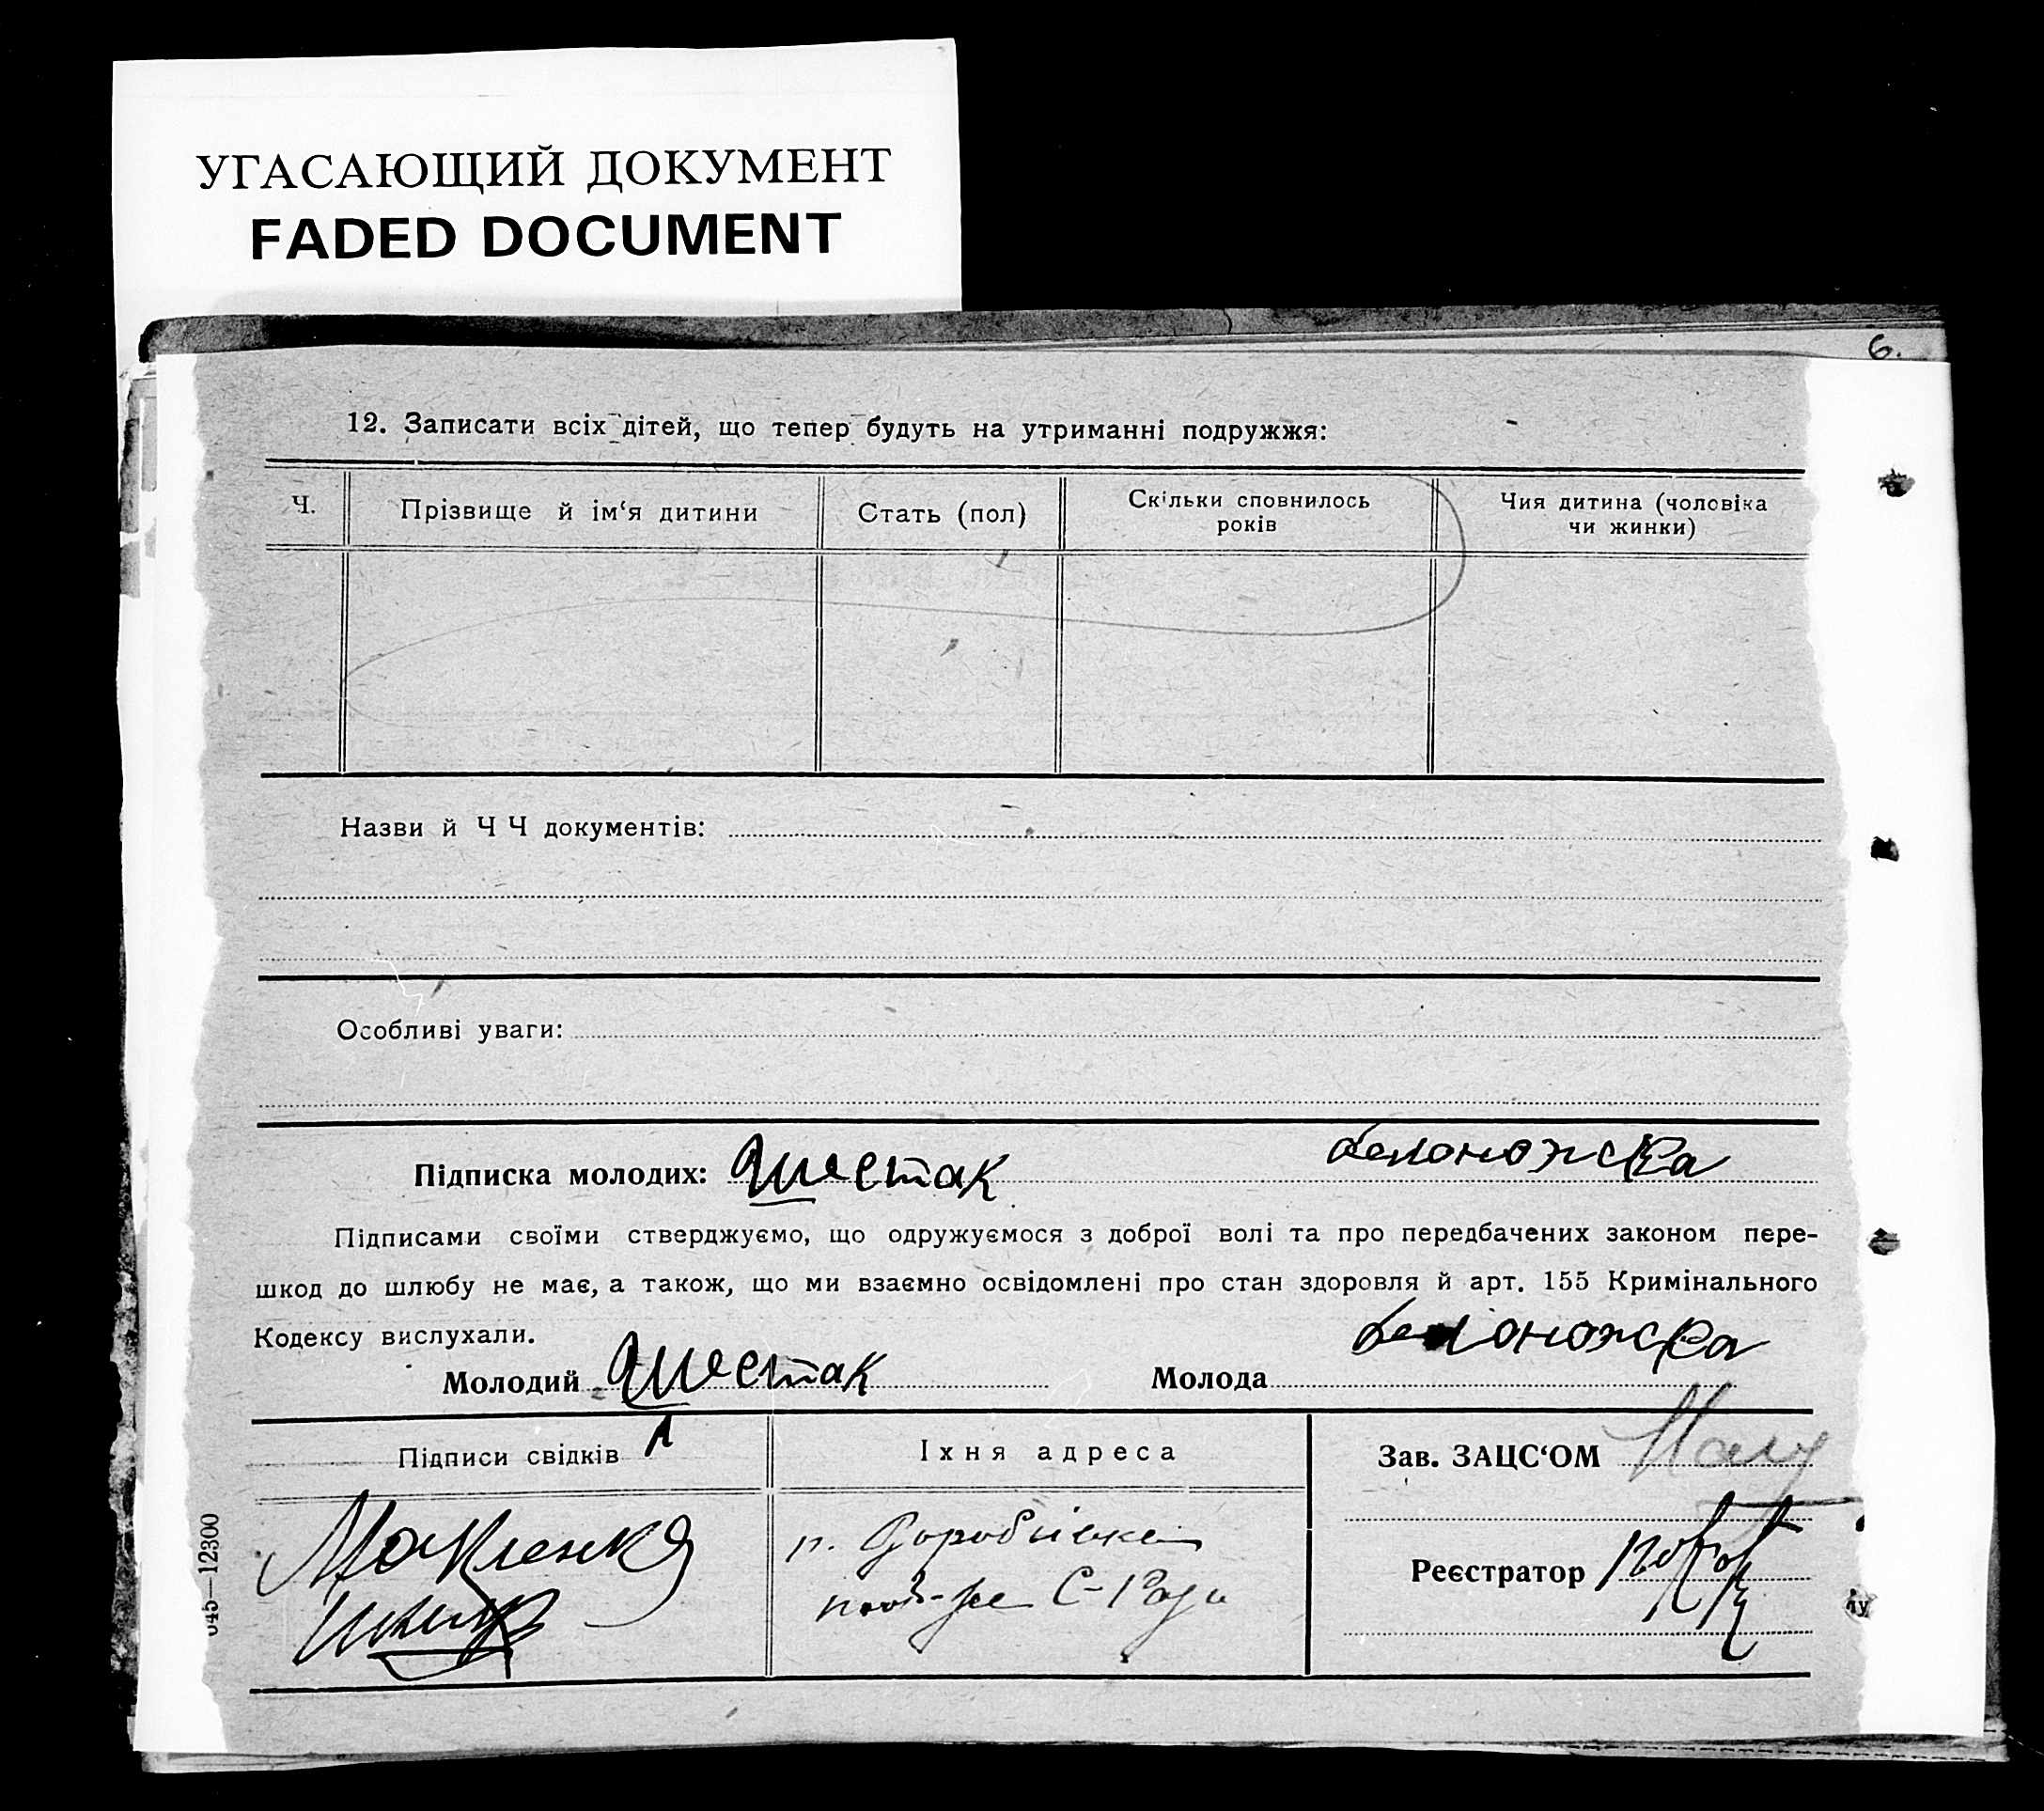 УГАСАЮЩИЙ ДОКУМЕНТ
FADED DOCUMENT
6.
12. Записати всіх дітей, що тепер будуть на утриманні подружжя:
Ч.
Прізвище й ім‘я дитини
Стать (пол)
Скільки сповнилось
років
Чия дитина (чоловіка
чи жинки)
Назви й Ч Ч документів:
Особливі уваги:
Підписка молодих: Шестак белоножска
Підписами своїми стверджуємо, що одружуємося з доброї волі та про передбачених законом пере-
шкод до шлюбу не має, а також, що ми взаємно освідомлені про стан здоровля й арт. 155 Кримінального
Кодексу вислухали.
Молодий Шестак Молода белоножска
Підписи свідків
Їхня адреса
Зав. ЗАЦС‘ОМ
Реєстратор
645—12300